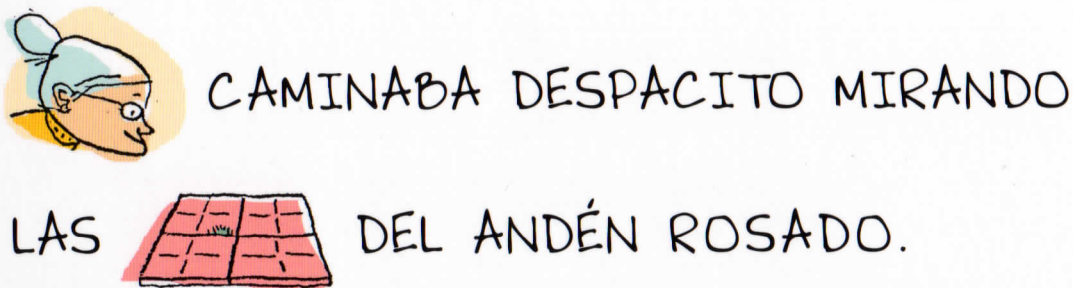 CAMINABA DESPACITO MIRANDO
LAS DEL ANDÉN ROSADO.